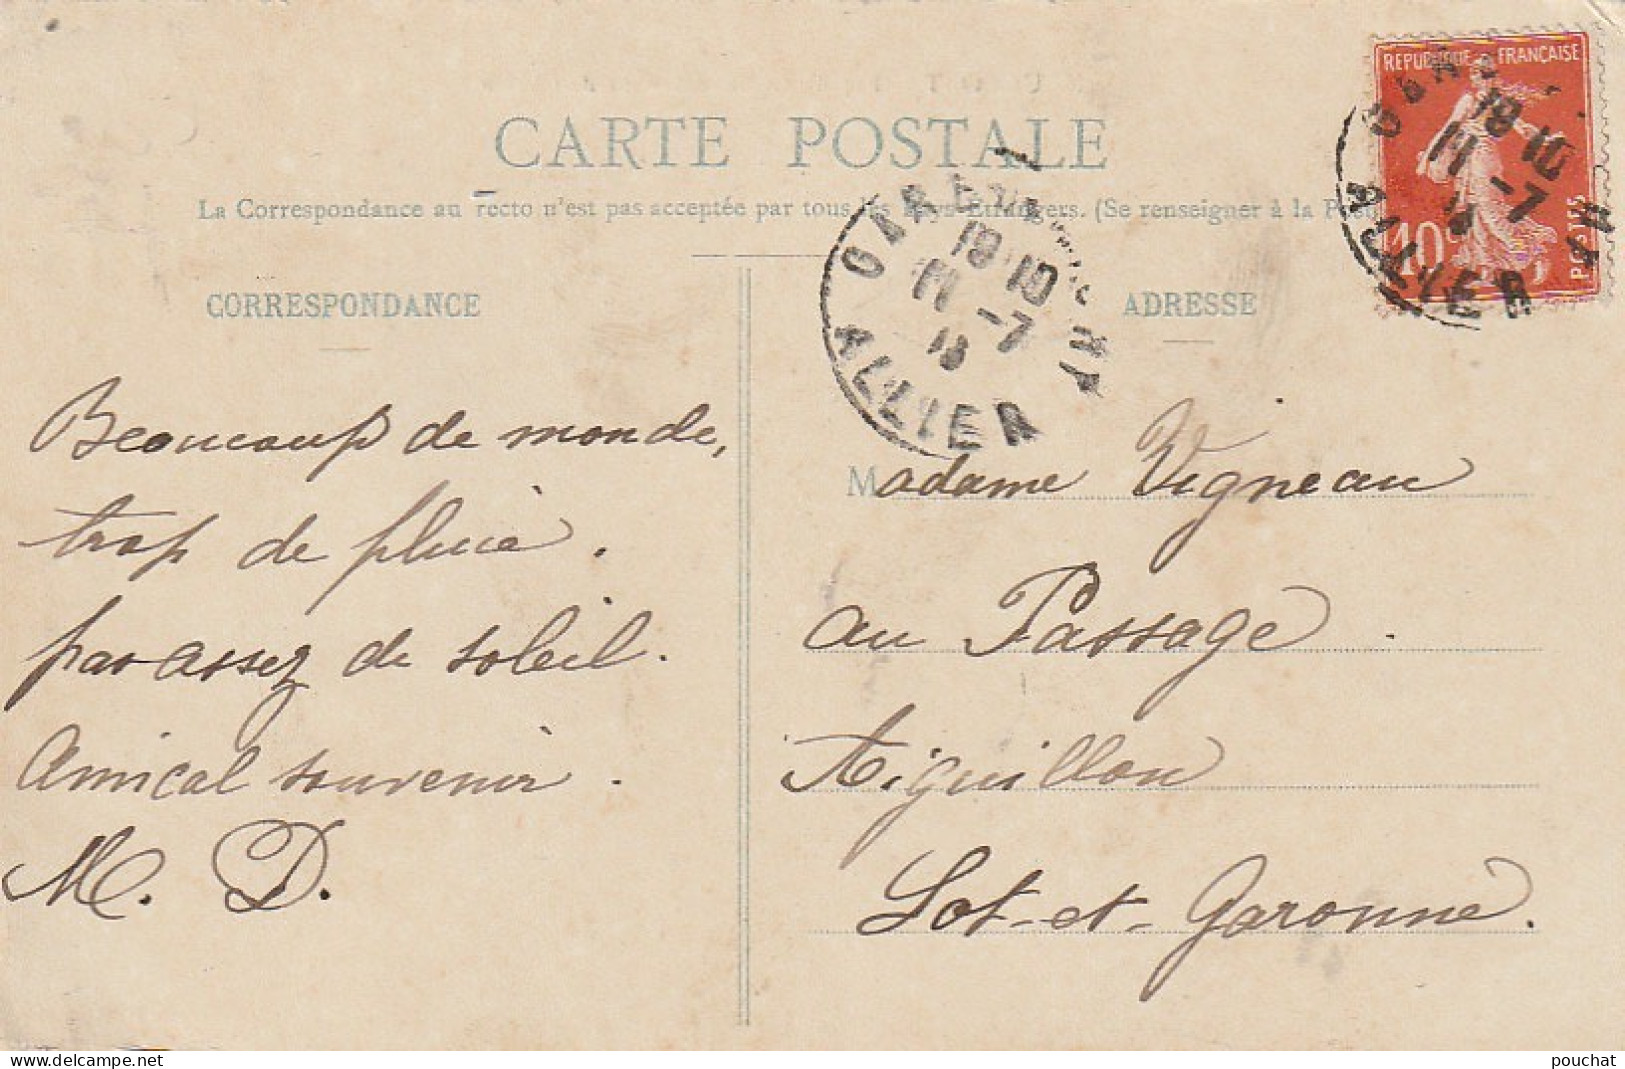 CARTE POSTALE
La Correspondance au recto n'est pas acceptée par tous les Pays Etrangers. (Se renseigner à la
CORRESPONDANCE
ADRESSE
REPUBLIQUE FRANÇAISE
10c
POSTES
18 10
11 -7
ALLIER
18 10
11 -7
ALLIER
Beaucoup de monde,
trop de pluie.
pas assez de soleil.
Amical souvenir.
M. D.
Madame Vigneau
au Passage
Aiguillon
Lot-et-Garonne.
delcampe.net
pouchat